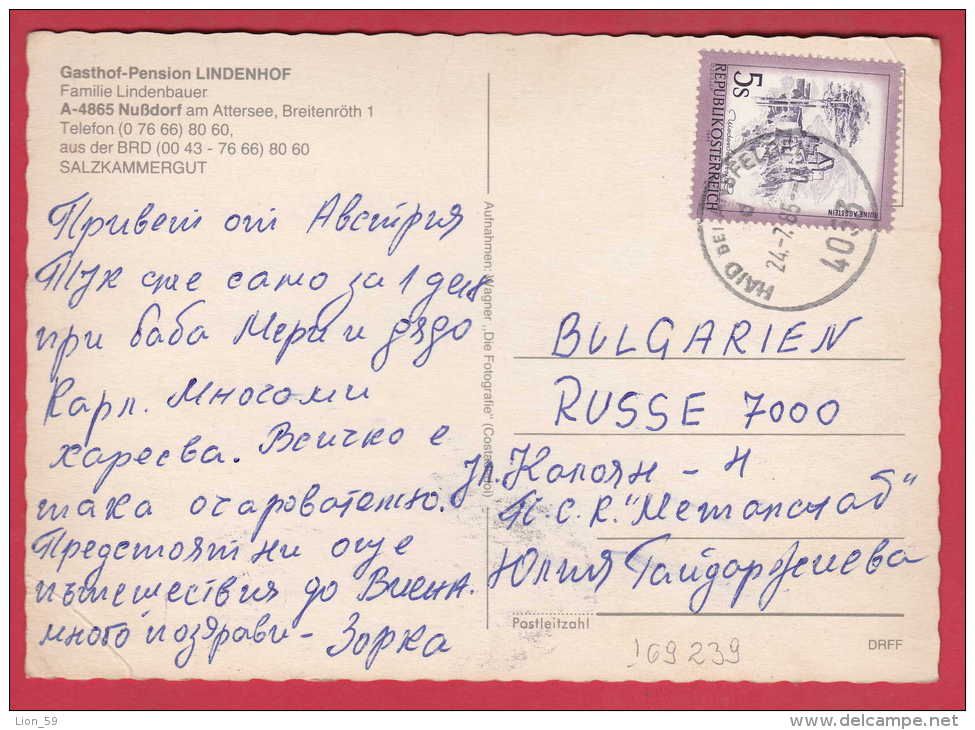 Gasthof-Pension LINDENHOF
Familie Lindenbauer
A-4865 Nußdorf am Attersee, Breitenröth 1
Telefon (0 76 66) 80 60,
aus der BRD (00 43 - 76 66) 80 60
SALZKAMMERGUT
Привет от Австрия
Тук сме само за 1 ден
при баба Мери и дядо
Карл. Много ми
харесва. Всичко е
така очарователно.
Предстоят ни още
пътешествия до Виена.
много поздрави - Зорка
Aufnahmen: Wagner „Die Fotografie"
5s
REPUBLIK ÖSTERREICH
RUINE AGGSTEIN
HAID BEI
24.-7.85
4053
BULGARIEN
RUSSE 7000
ул. Калоян - 4
"Металснаб"
Юлия Гайдарджиева
Postleitzahl
DRFF
169239
Lion_59
www.delcampe.net